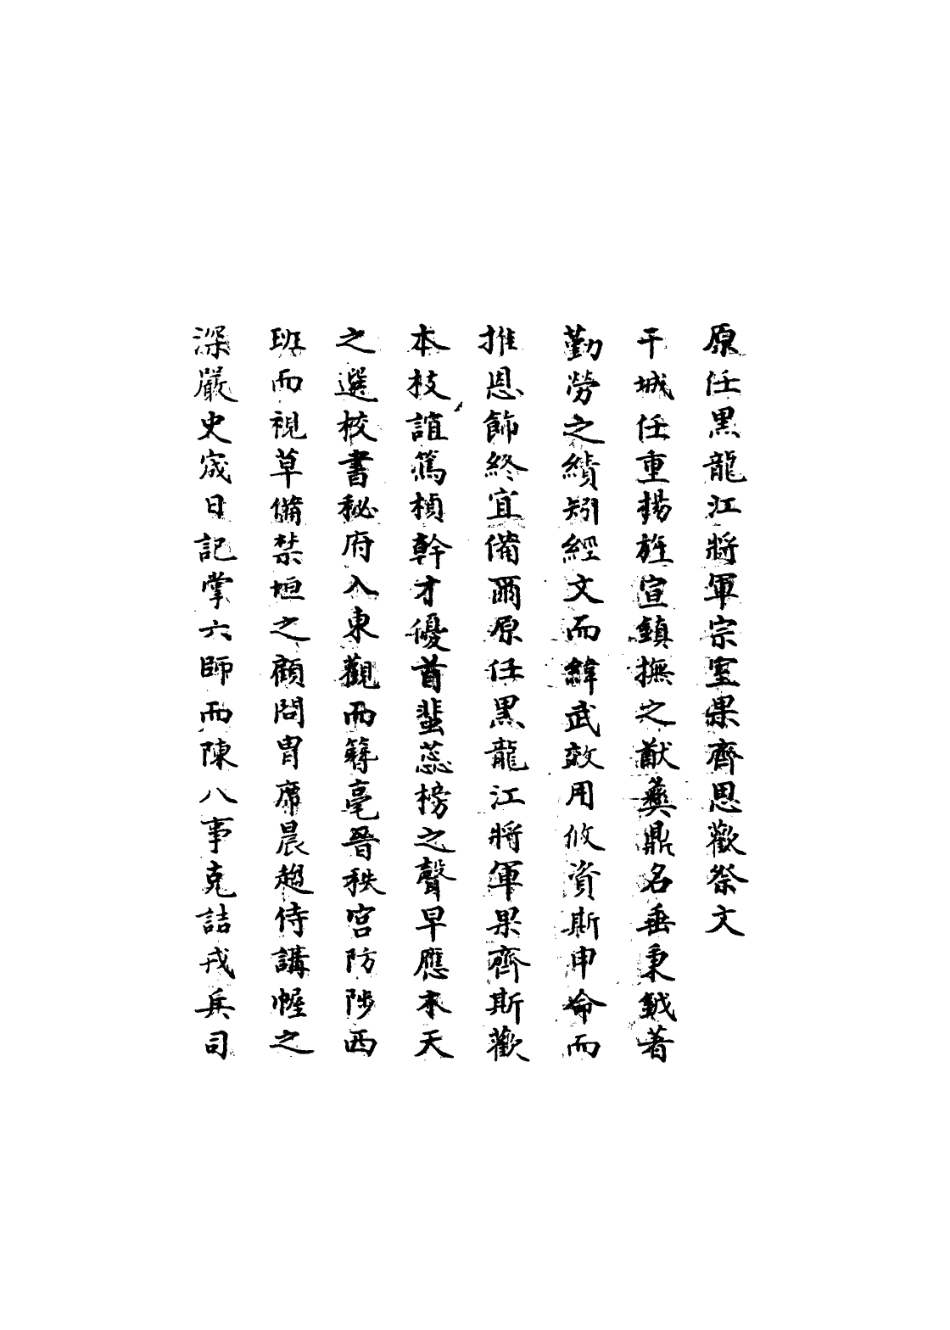 原任黑龍江將軍宗室果齊思歡祭文
干城任重揚旌宣鎮撫之猷彝鼎名垂秉鉞著
勤勞之績矧經文而緯武效用攸資斯申命而
推恩飾終宜備爾原任黑龍江將軍果齊斯歡
本枝誼篤楨幹才優首蜚蕊榜之聲早應木天
之選校書秘府入東觀而簪毫晉秩宮防陟西
班而視草備禁垣之顧問胄席晨趨侍講幄之
深嚴史宬日記掌六師而陳八事克詰戎兵司